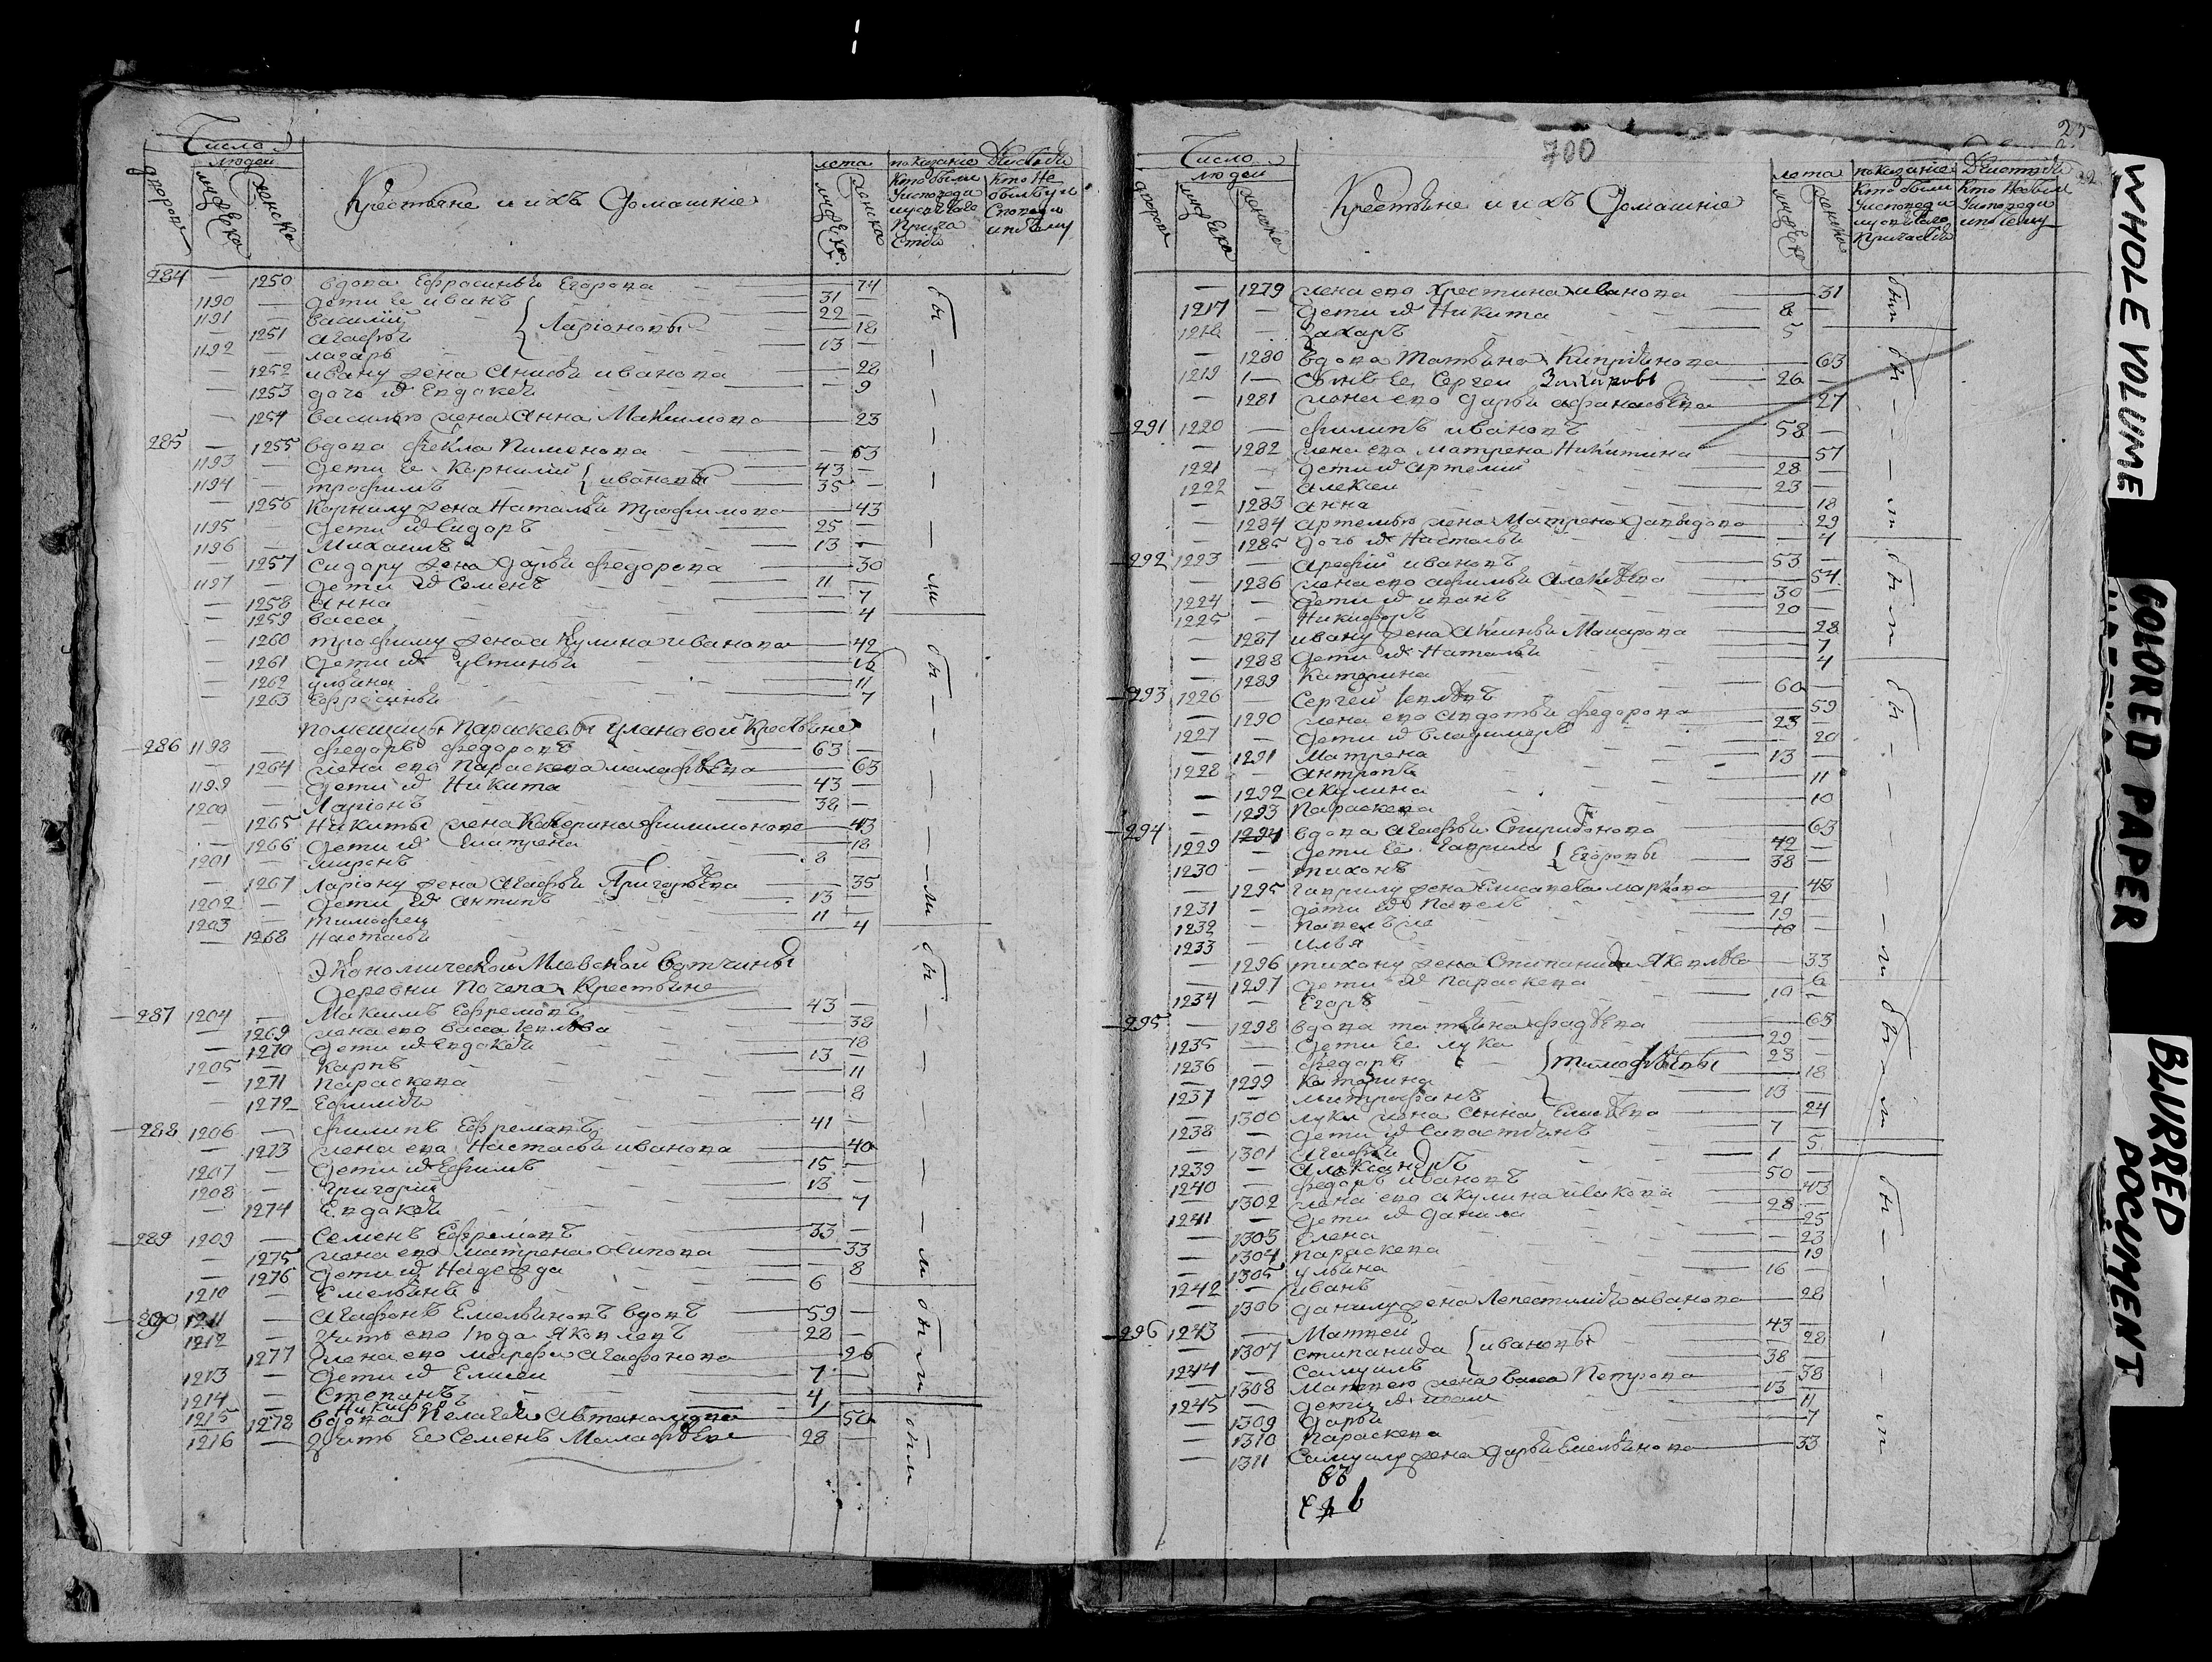 Число
людей
дворовъ
мужеска
женска
Крестьяне и ихъ домашніе
лета
мужеска
женска
показаніе действа
Кто были у исповеди и у святаго причастія
Кто не былъ у исповеди и почему
284 — 1250 вдова Ефросинья Егорова — 74
1190 — дети ея иванъ 31 —
1191 — василій 22 —
— 1251 агафья } Ларіоновы — 18
1192 — лазарь 13 —
— 1252 ивану жена Анисья иванова — 28
— 1253 дочь их Евдокея — 9
— 1254 василью жена Анна Максимова — 23
285 — 1255 вдова фекла Пименова — 63
1193 — дети ея Корнилий 43 —
1194 — трофимъ } ивановы 35 —
— 1256 Корнилу жена Наталья трофимова — 43
1195 — дети их Сидоръ 25 —
1196 — Михаилъ 13 —
— 1257 сидору жена дарья федорова — 30
1197 — дети их Семенъ 11 —
— 1258 Анна — 7
— 1259 васса — 4
— 1260 трофиму жена акулина иванова — 42
— 1261 дети их устинья — 15
— 1262 ульяна — 11
— 1263 Ефросинья — 7
помещицы Параскевы улановой Крестьяне
286 1198 — федоръ федоровъ 63 —
— 1264 жена ево Параскева малафеева — 63
1199 — дети их Никита 43 —
1200 — Ларіонъ 38 —
— 1265 Никиты жена Катерина филимонова — 43
— 1266 дети их матрена — 18
1201 — миронъ 8 —
— 1267 Ларіону жена Агафья Григорьева — 35
1202 — дети их антипъ 13 —
1203 — тимофей 11 —
— 1268 Настасья — 4
Экономической Млевской вотчины
деревни Почепа Крестьяне
287 1204 — Максимъ Ефремовъ 43 —
— 1269 жена ево васса Іевлева — 38
— 1270 дети их Евдокея — 18
1205 — карпъ 13 —
— 1271 параскева — 11
— 1272 Ефимья — 8
288 1206 — филипъ Ефремовъ 41 —
— 1273 жена ево Настасья иванова — 40
1207 — дети их Ефимъ 15 —
1208 — григорий 13 —
— 1274 Евдокея — 7
289 1209 — Семенъ Ефремовъ 33 —
— 1275 жена ево матрена осипова — 33
— 1276 дети их Надежда — 8
1210 — Емельянъ 6
290 1211 — агафонъ Емельяновъ вдовъ 59 —
1212 — зять ево Іюда Яковлевъ 28 —
— 1277 жена ево марфа агафонова — 26
1213 — дети их Елисей 7 —
1214 — Степанъ 4
1215 — Никифоръ 1
1278 вдова Пелагея Автаномова — 50
1216 — зять ея Семенъ Малафеевъ 28 —
были
700
25
22
Число
людей
дворовъ
мужеска
женска
Крестьяне и ихъ домашніе
лета
мужеска
женска
показаніе действа
Кто были у исповеди и у святаго причастія
Кто не были у исповеди и почему
— 1279 жена ево Христина иванова — 31
1217 — дети их Никита 8
1218 — захаръ 5
— 1280 вдова татьяна Кипріянова — 63
1219 — сынъ ея Сергей Захаровъ 26 —
— 1281 жена ево дарья афанасьева — 27
291 1220 — филипъ ивановъ 58 —
— 1282 жена ево матрена Никитина — 57
1221 — дети их артемий 28 —
1222 — алексей 23 —
— 1283 анна — 18
— 1284 артемью жена Матрена давыдова — 29
— 1285 дочь их Настасья — 4
292 1223 — арефий ивановъ 53 —
— 1286 жена ево афимья Алексеева — 54
1224 — дети их иванъ 30 —
1225 — Никифоръ 20 —
— 1287 ивану жена аксинья Макарова — 28
— 1288 дети их Наталья — 7
— 1289 Катерина — 4
293 1226 — Сергей Іевлевъ 60 —
— 1290 жена ево авдотья федорова — 59
1227 — дети их владимеръ 23 —
— 1291 Матрена — 20
1228 — антропъ 13 —
— 1292 акулина — 11
— 1293 Параскева — 10
294 — 1294 вдова агафья Спиридонова — 63
1229 — дети ея гаврила 42 —
1230 — тихонъ } Егоровы 38 —
— 1295 гаврилу жена Елисавета маркова — 43
1231 — дети их Павелъ 21
1232 — павелъ же 19 —
1233 — илья 10 —
— 1296 тихону жена Стипанида Яковлева — 33
— 1297 дети их параскева — 6
1234 — Егоръ 10 —
295 — 1298 вдова татьяна фадеева — 65
1235 — дети ея лука 29 —
1236 — федоръ } тимофеевы 23 —
— 1299 Катерина — 18
1237 — митрофанъ 13 —
— 1300 луки жена Анна Елисеева — 24
1238 — дети их Савастьянъ 7 —
— 1301 агафья — 5
1239 — Александръ 1 —
1240 — федоръ ивановъ 50 —
— 1302 жена ево акулина иакова — 43
1241 — дети их данила 28 —
— 1303 Елена — 25
— 1304 параскева — 23
— 1305 ульяна — 19
1242 — иванъ 16 —
— 1306 данилу жена Лепестимья иванова — 28
296 1243 — Матвей 43 —
— 1307 стипанида } ивановы — 28
1244 — самуилъ 38 —
— 1308 Матвею жена васса Петрова — 38
1245 — дети их 13
— 1309 дарья — 11
— 1310 параскева — 7
— 1311 Самуилу жена дарья Емельянова — 33
были